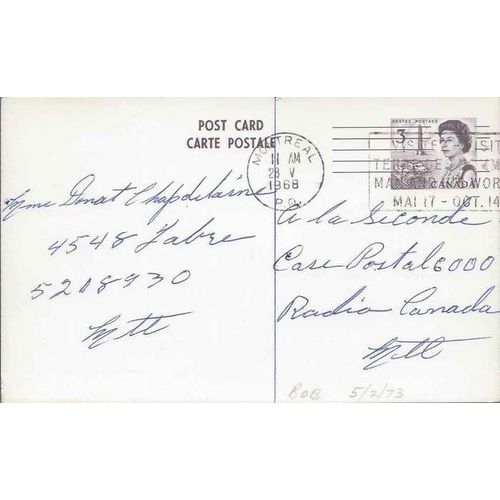 POST CARD
CARTE POSTALE
MONTREAL
11 AM
28 V
1968
P.Q.
POSTES POSTAGE
3
CANADA
VISITE
SIT
TER
MAN AND
WOR
MAI 17 - OCT. 14
Mme Donat Chapdelaine
4548 Fabre
5218930
Mtl
A la Seconde
Case Postal 6000
Radio Canada
Mtl
BOB 5/2/73